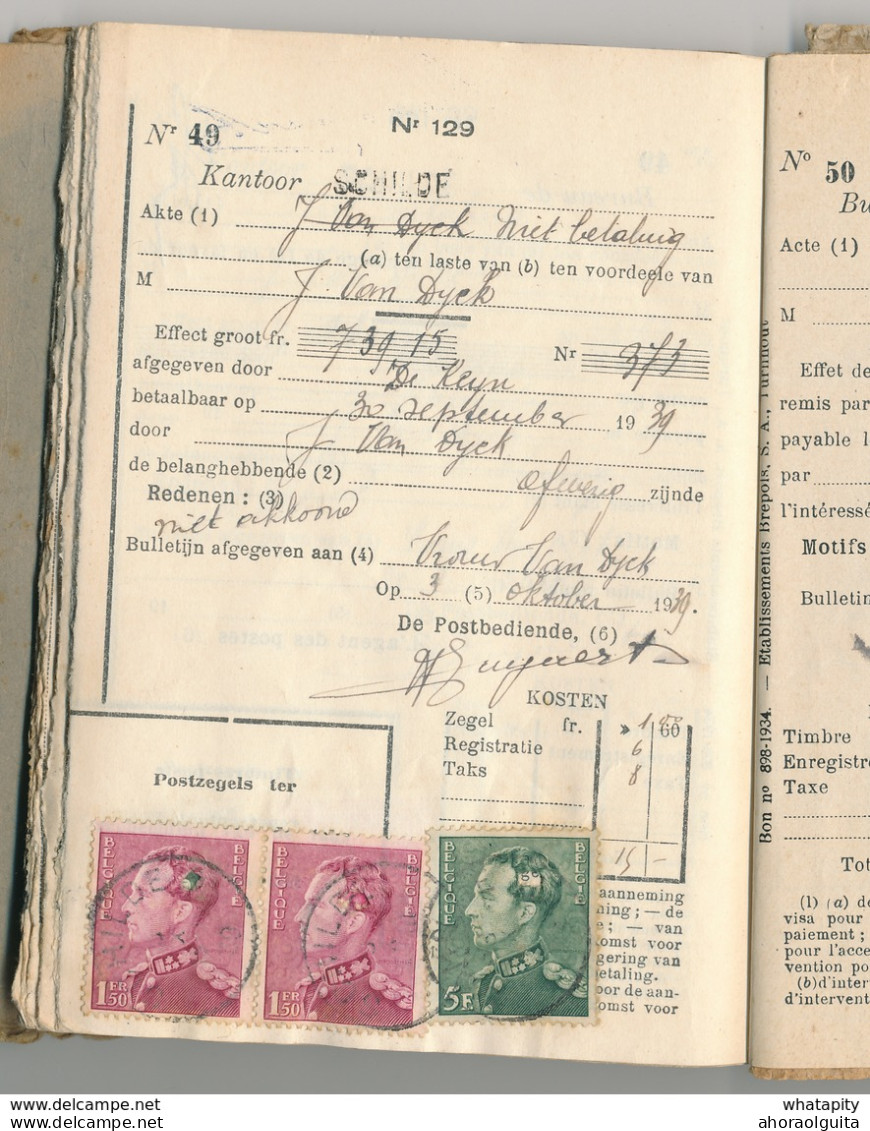 Nr 49
Nr 129
Kantoor SCHILDE
Akte (1) J Van Dyck Niet betaling
(a) ten laste van (b) ten voordeele van
M J. Van Dyck
Effect groot fr. 739 15 Nr 373
afgegeven door De Keyn
betaalbaar op 30 september 1939
door J Van Dyck
de belanghebbende (2) afwezig zijnde
Redenen : (3)
niet akkoord
Bulletijn afgegeven aan (4) Vrouw Van Dyck
Op 3 (5) oktober 1939.
De Postbediende, (6)
KOSTEN
Zegel fr. 60
Registratie 6
Taks 8
15 -
Postzegels ter
BELGIË BELGIQUE 1FR 50
BELGIQUE BELGIË 1FR 50
BELGIË BELGIQUE 5F
aanneming
ning ; — de
e ; — van
komst voor
gering van
etaling.
oor de aan-
omst voor
Bon nº 898-1934. — Etablissements Brepols, S. A., Turnhout
Nº 50
Bu
Acte (1)
M
Effet de
remis par
payable l
par
l'intéressé
Motifs
Bulletin
Timbre
Enregistre
Taxe
Tot
(1) (a) de
visa pour
paiement ;
pour l'acce
vention po
(b) d'inter
d'intervent
whatapity
ahoraolguita